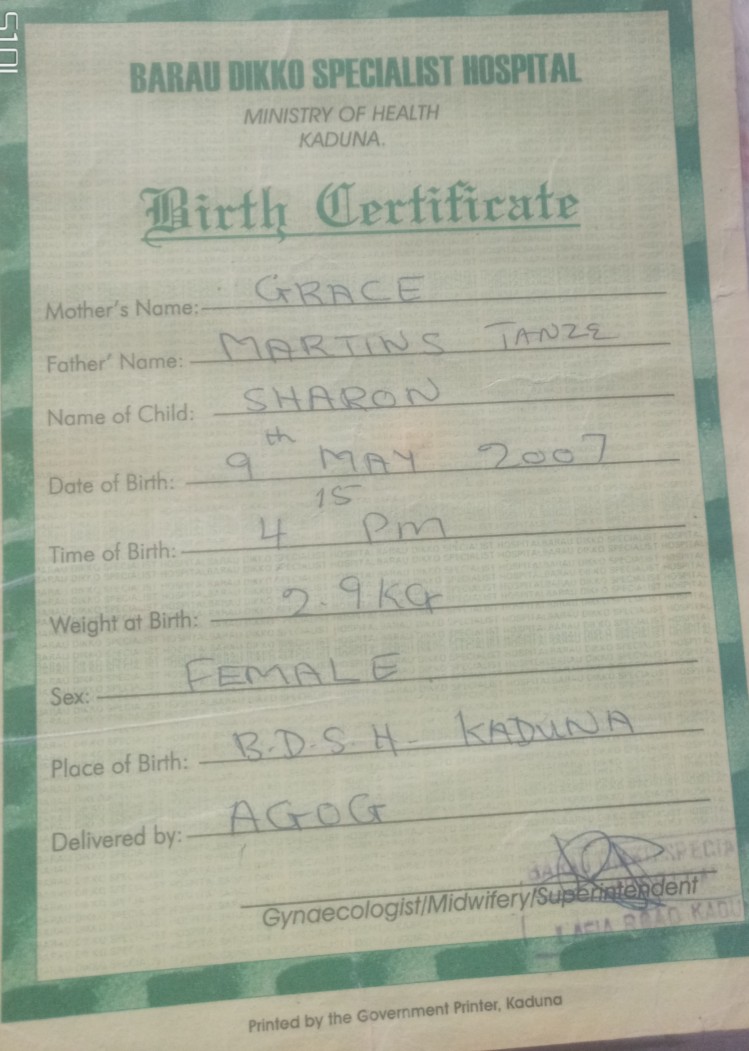 BARAU DIKKO SPECIALIST HOSPITAL
MINISTRY OF HEALTH
KADUNA.
Birth Certificate
Mother's Name: GRACE
Father' Name: MARTINS TANZE
Name of Child: SHARON
Date of Birth: 9th MAY 2007
Time of Birth: 4 15 Pm
Weight at Birth: 2.9KG
Sex: FEMALE
Place of Birth: B.D.S.H- KADUNA
Delivered by: AGOG
Gynaecologist/Midwifery/Superintendent
ROAD KADU
Printed by the Government Printer, Kaduna